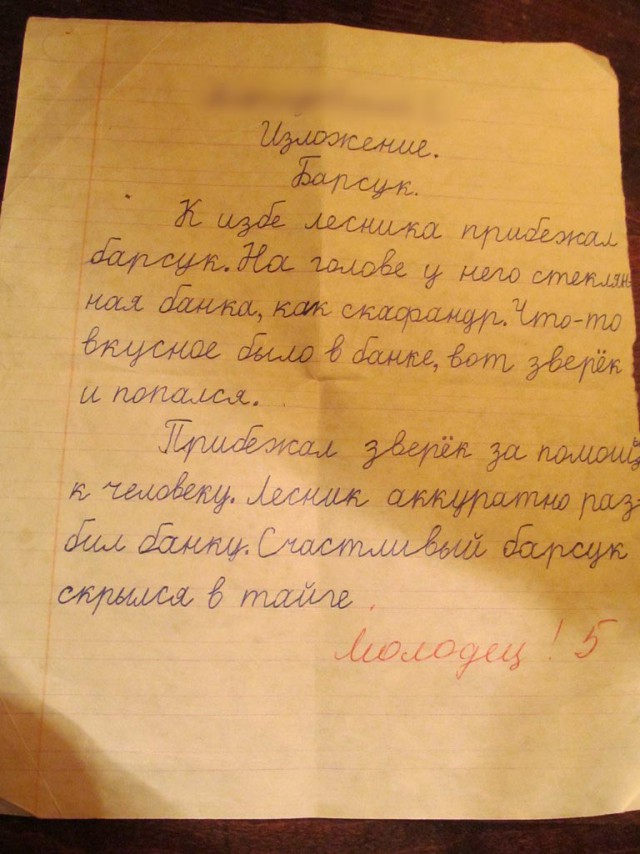 Изложение.
Барсук.
К избе лесника прибежал
барсук. На голове у него стеклян-
ная банка, как скафандр. Что-то
вкусное было в банке, вот зверёк
и попался.
Прибежал зверёк за помощью
к человеку. Лесник аккуратно раз-
бил банку. Счастливый барсук
скрылся в тайге.
Молодец! 5